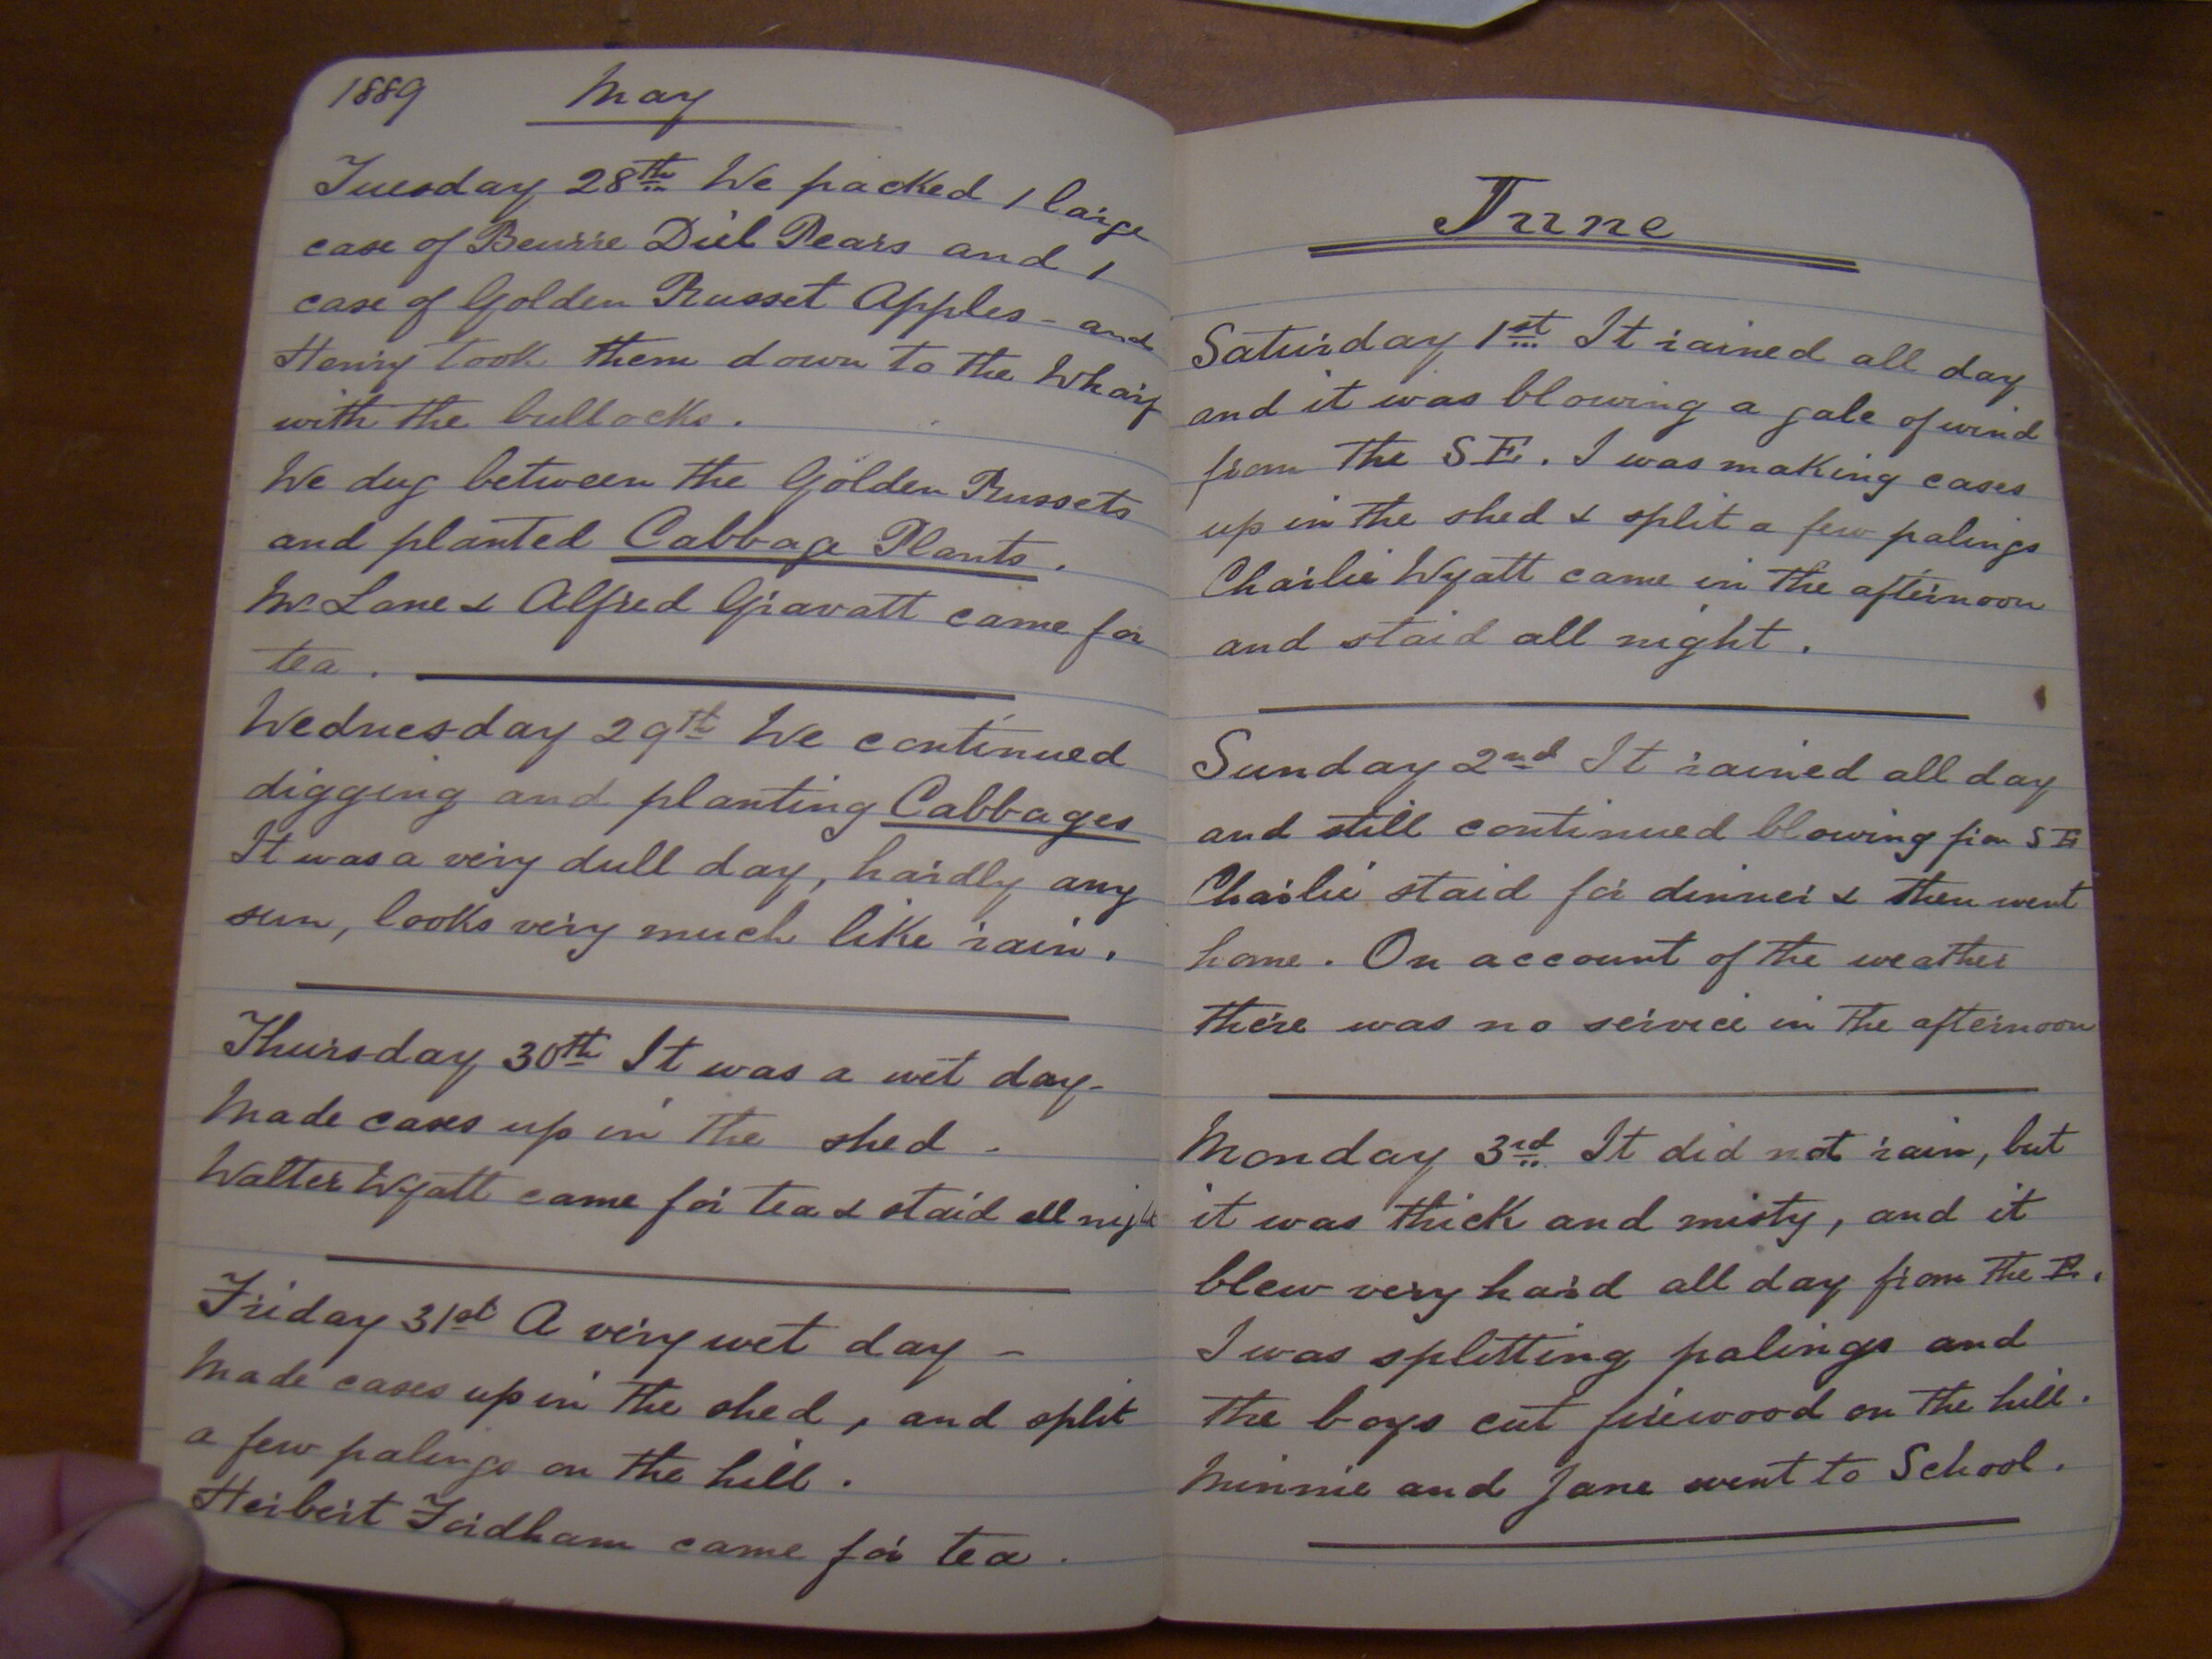 1889 May
Tuesday 28th We packed 1 large
case of Beurre Diel Pears and 1
case of Golden Russet Apples - and
Henry took them down to the Wharf
with the bullocks.
We dug between the Golden Russets
and planted Cabbage Plants.
Mr Lane & Alfred Gravatt came for
tea.
Wednesday 29th We continued
digging and planting Cabbages
It was a very dull day, hardly any
sun, looks very much like rain.
Thursday 30th It was a wet day-
Made cases up in the shed -
Walter Wyatt came for tea & staid all night
Friday 31st A very wet day -
Made cases up in the shed, and split
a few palings on the hill.
Herbert Fordham came for tea.
June
Saturday 1st It rained all day
and it was blowing a gale of wind
from the S E. I was making cases
up in the shed & split a few palings
Charlie Wyatt came in the afternoon
and staid all night.
Sunday 2nd It rained all day
and still continued blowing from S E
Charlie staid for dinner & then went
home. On account of the weather
there was no service in the afternoon
Monday 3rd It did not rain, but
it was thick and misty, and it
blew very hard all day from the E.
I was splitting palings and
the boys cut firewood on the hill.
Minnie and Jane went to School.